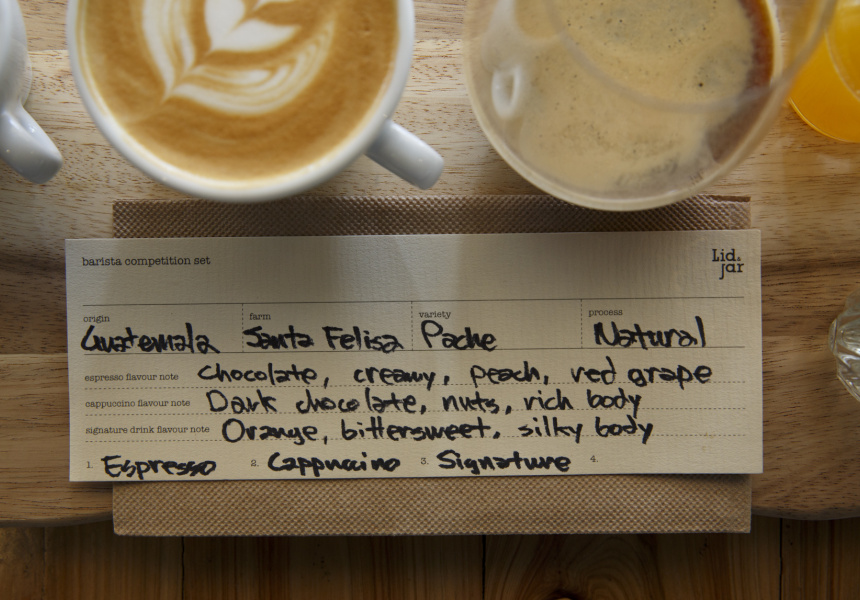 barista competition set
Lid.
jar
origin farm variety process
Guatemala Santa Felisa Pache Natural
espresso flavour note Chocolate, creamy, peach, red grape
cappuccino flavour note Dark chocolate, nuts, rich body
signature drink flavour note Orange, bittersweet, silky body
1. Espresso 2. Cappuccino 3. Signature 4.